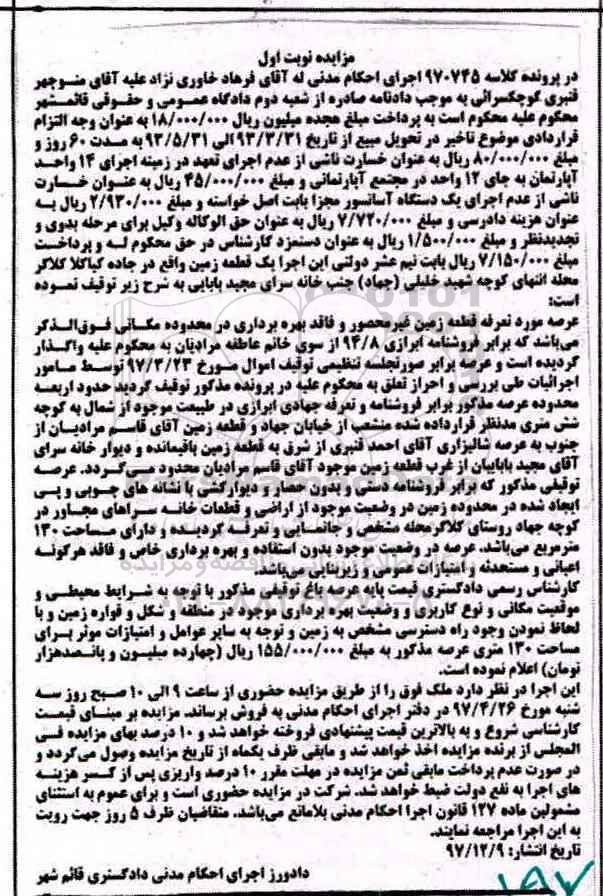 مزایده نوبت اول
در پرونده کلاسه ۹۷۰۷۴۵ اجرای احکام مدنی له آقای فرهاد خاوری نژاد علیه آقای منوچهر
قنبری کوچکسرائی به موجب دادنامه صادره از شعبه دوم دادگاه عمومی و حقوقی قائمشهر
محکوم علیه محکوم است به پرداخت مبلغ هجده میلیون ریال ۱۸/۰۰۰/۰۰۰ به عنوان وجه التزام
قراردادی موضوع تاخیر در تحویل مبیع از تاریخ ۹۳/۳/۳۱ الی ۹۳/۵/۳۱ به مدت ۶۰ روز و
مبلغ ۸۰/۰۰۰/۰۰۰ ریال به عنوان خسارت ناشی از عدم اجرای تعهد در زمینه اجرای ۱۴ واحد
آپارتمان به جای ۱۲ واحد در مجتمع آپارتمانی و مبلغ ۴۵/۰۰۰/۰۰۰ ریال به عنوان خسارت
ناشی از عدم اجرای یک دستگاه آسانسور مجزا بابت اصل خواسته و مبلغ ۲/۹۳۰/۰۰۰ ریال به
عنوان هزینه دادرسی و مبلغ ۷/۷۲۰/۰۰۰ ریال به عنوان حق الوکاله وکیل برای مرحله بدوی و
تجدیدنظر و مبلغ ۱/۵۰۰/۰۰۰ ریال به عنوان دستمزد کارشناس در حق محکوم له و پرداخت
مبلغ ۷/۱۵۰/۰۰۰ ریال بابت نیم عشر دولتی این اجرا یک قطعه زمین واقع در جاده کیاکلا کلاگر
محله انتهای کوچه شهید خلیلی (جهاد) جنب خانه سرای مجید بابایی به شرح زیر توقیف نموده
است:
عرصه مورد تعرفه قطعه زمین غیرمحصور و فاقد بهره برداری در محدوده مکانی فوق‌الذکر
می‌باشد که برابر فروشنامه ابرازی ۹۴/۸ از سوی خانم عاطفه مرادیان به محکوم علیه واگذار
گردیده است و عرصه برابر صورتجلسه تنظیمی توقیف اموال مورخ ۹۷/۳/۲۳ توسط مامور
اجرائیات طی بررسی و احراز تعلق به محکوم علیه در پرونده مذکور توقیف گردید حدود اربعه
محدوده عرصه مذکور برابر فروشنامه و تعرفه جهادی ابرازی در طبیعت موجود از شمال به کوچه
شش متری مدنظر قرارداده شده منشعب از خیابان جهاد و قطعه زمین آقای قاسم مرادیان از
جنوب به عرصه شالیزاری آقای احمد قنبری از شرق به قطعه زمین باقیمانده و دیوار خانه سرای
آقای مجید بابائیان از غرب قطعه زمین موجود آقای قاسم مرادیان محدود می‌گردد. عرصه
توقیفی مذکور که برابر فروشنامه دستی و بدون حصار و دیوارکشی با نشانه های چوبی و پی
ایجاد شده در محدوده زمین در وضعیت موجود از اراضی و قطعات خانه سراهای مجاور در
کوچه جهاد روستای کلاگرمحله مشخص و جانمایی و تعرفه گردیده و دارای مساحت ۱۳۰
مترمربع می‌باشد. عرصه در وضعیت موجود بدون استفاده و بهره برداری خاص و فاقد هرگونه
اعیانی و مستحدثه و امتیازات عمومی و زیربنایی می‌باشد.
کارشناس رسمی دادگستری قیمت پایه عرصه باغ توقیفی مذکور با توجه به شرایط محیطی و
موقعیت مکانی و نوع کاربری و وضعیت بهره برداری موجود در منطقه و شکل و قواره زمین و با
لحاظ نمودن وجود راه دسترسی مشخص به زمین و توجه به سایر عوامل و امتیازات موثر برای
مساحت ۱۳۰ متری عرصه مذکور به مبلغ ۱۵۵/۰۰۰/۰۰۰ ریال (چهارده میلیون و پانصدهزار
تومان) اعلام نموده است.
این اجرا در نظر دارد ملک فوق را از طریق مزایده حضوری از ساعت ۹ الی ۱۰ صبح روز سه
شنبه مورخ ۹۷/۴/۲۶ در دفتر اجرای احکام مدنی به فروش برساند. مزایده بر مبنای قیمت
کارشناسی شروع و به بالاترین قیمت پیشنهادی فروخته خواهد شد و ۱۰ درصد بهای مزایده فی
المجلس از برنده مزایده اخذ خواهد شد و مابقی ظرف یکماه از تاریخ مزایده وصول می‌گردد و
در صورت عدم پرداخت مابقی ثمن مزایده در مهلت مقرر ۱۰ درصد واریزی پس از کسر هزینه
های اجرا به نفع دولت ضبط خواهد شد. شرکت در مزایده حضوری است و برای عموم به استثنای
مشمولین ماده ۱۲۷ قانون اجرا احکام مدنی بلامانع می‌باشد. متقاضیان ظرف ۵ روز جهت رویت
به این اجرا مراجعه نمایند.
تاریخ انتشار: ۹۷/۱۲/۹
دادورز اجرای احکام مدنی دادگستری قائم شهر
۱۹۷